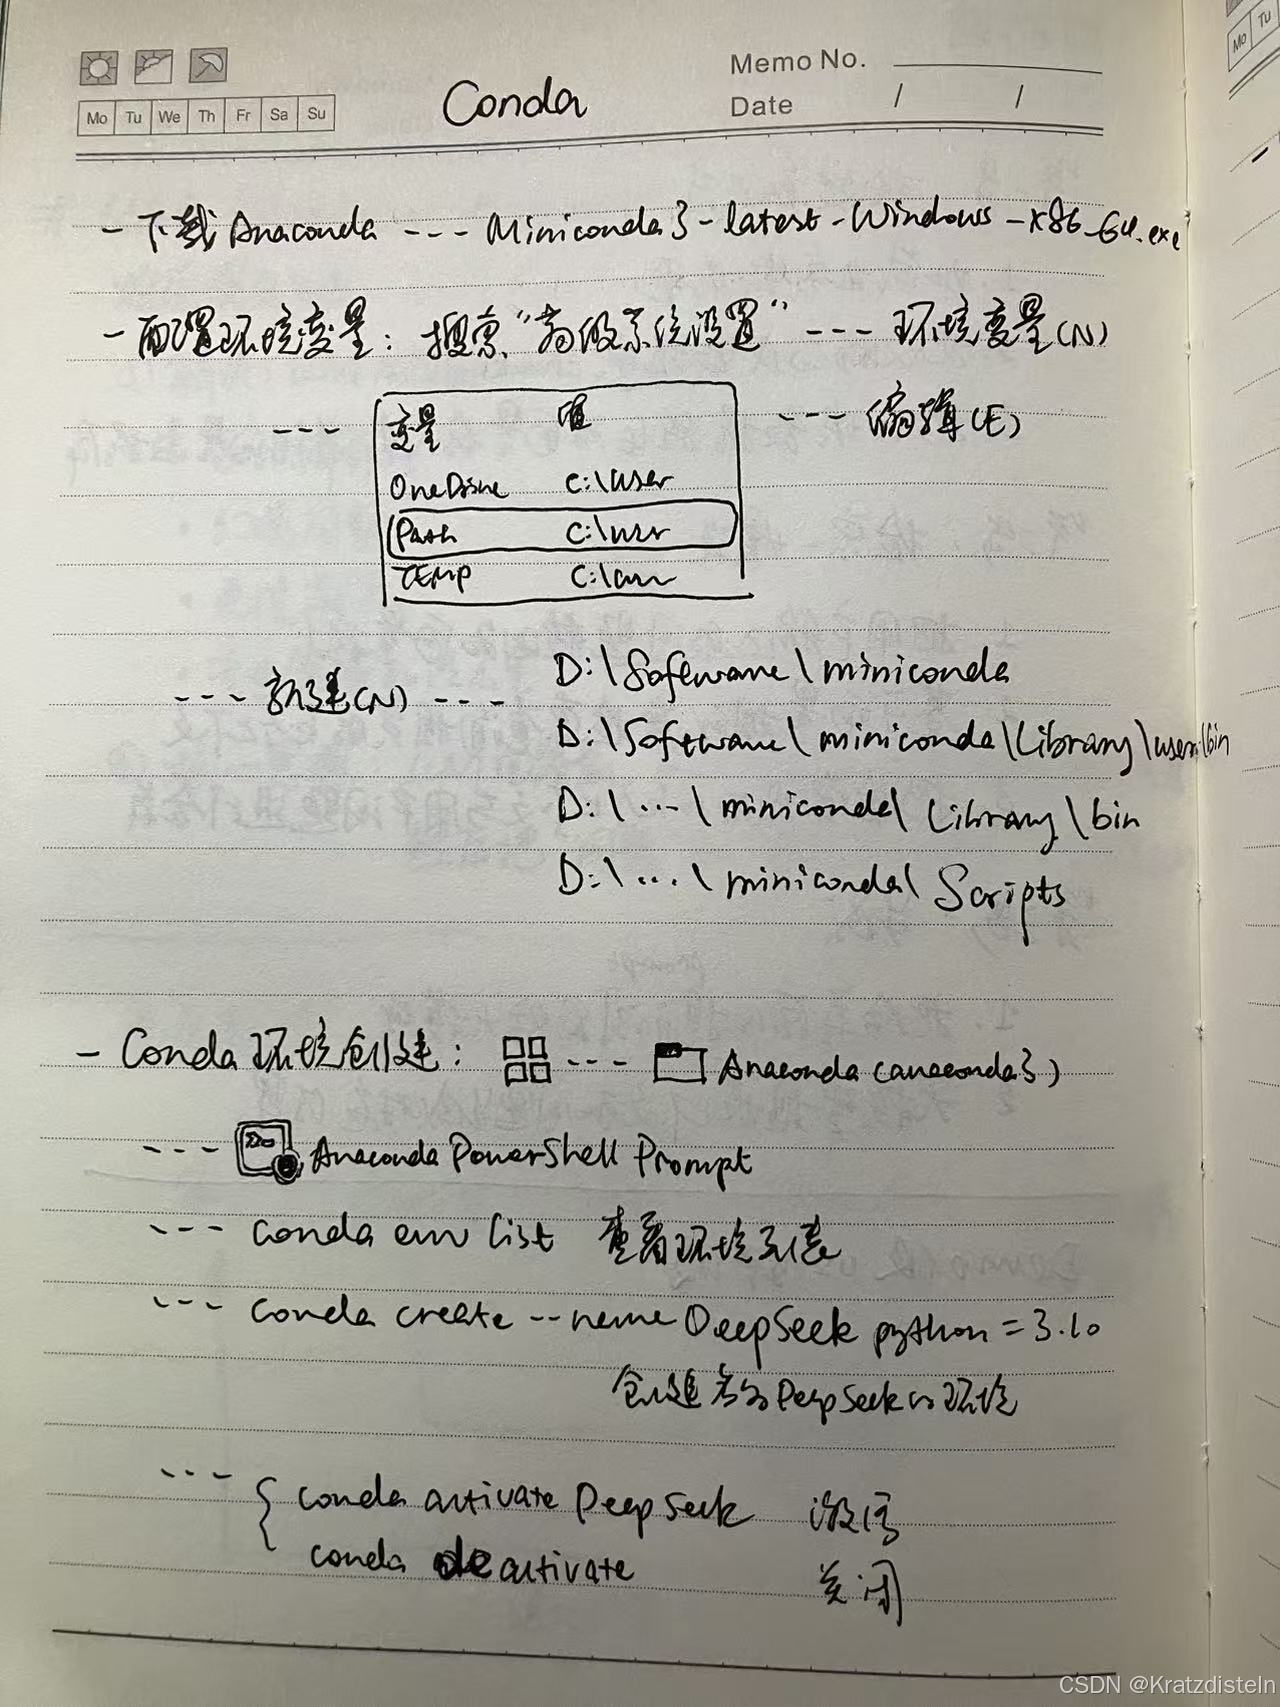 Memo No.
Mo Tu We Th Fr Sa Su
Conda
Date / /
Mo Tu
- 下载 Anaconda --- Miniconda3-latest-Windows-x86_64.exe
- 配置环境变量: 搜索“高级系统设置” --- 环境变量(N)
--- 变量 值 --- 编辑(E)
OneDrive C:\user
Path C:\user
TEMP C:\user
--- 新建(N) --- D:\Software\miniconda
D:\Software\miniconda\Library\user\bin
D:\...\miniconda\Library\bin
D:\...\miniconda\Scripts
- Conda环境创建: --- Anaconda (anaconda3)
--- Anaconda PowerShell Prompt
--- conda env list 查看环境系统
--- conda create --name DeepSeek python=3.10
创建名为DeepSeek的环境
--- { conda activate DeepSeek 激活
conda deactivate 关闭
CSDN @Kratzdisteln